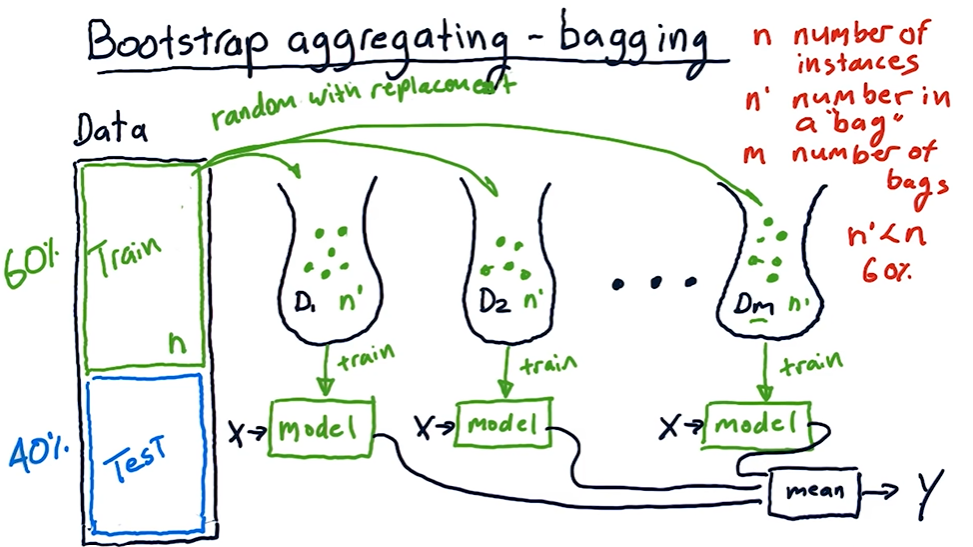 Bootstrap aggregating - bagging
n number of
instances
n' number in
a "bag"
m number of
bags
n' < n
60%
random with replacement
Data
60%
Train
n
40%
Test
D1 n'
D2 n'
...
Dm n'
train
train
train
X→ model
X→ model
X→ model
mean → Y